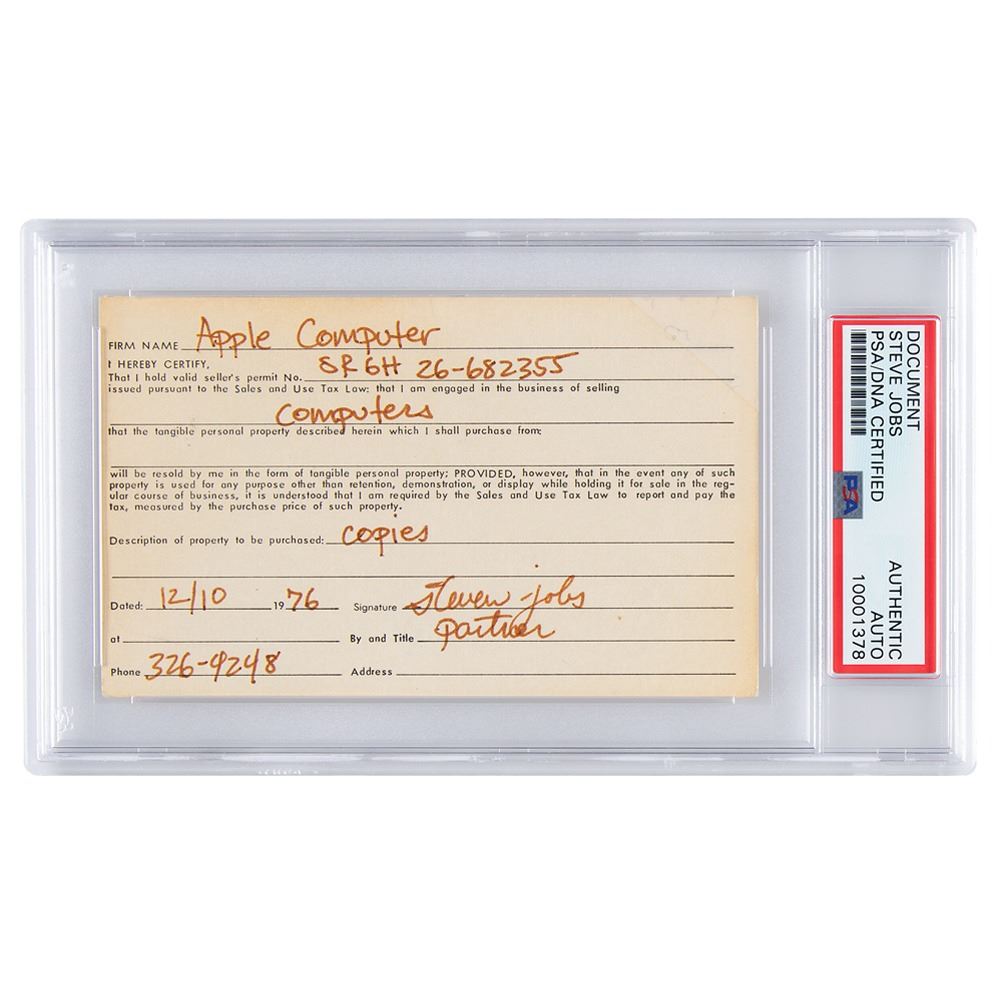 FIRM NAME Apple Computer
I HEREBY CERTIFY,
That I hold valid seller's permit No. SR GH 26-682355
issued pursuant to the Sales and Use Tax Law: that I am engaged in the business of selling
computers
that the tangible personal property described herein which I shall purchase from:
will be resold by me in the form of tangible personal property; PROVIDED, however, that in the event any of such
property is used for any purpose other than retention, demonstration, or display while holding it for sale in the reg-
ular course of business, it is understood that I am required by the Sales and Use Tax Law to report and pay the
tax, measured by the purchase price of such property.
Description of property to be purchased: copies
Dated: 12/10 19 76 Signature steven jobs
at By and Title partner
Phone 326-9248 Address
DOCUMENT
STEVE JOBS
PSA/DNA CERTIFIED
PSA
AUTHENTIC
AUTO
10001378